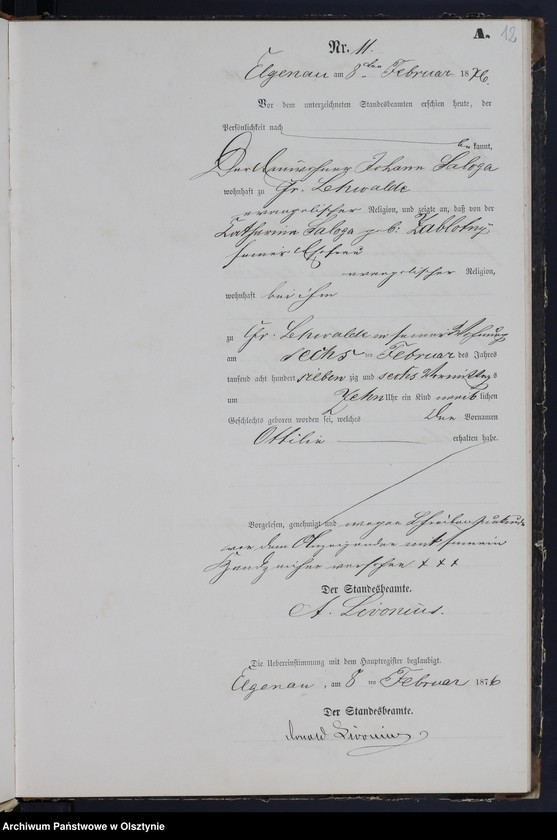 A. 12
Nr. 11.
Elgenau am 8ten Februar 1876.
Vor dem unterzeichneten Standesbeamten erschien heute, der
Persönlichkeit nach
be kannt,
Der Einwohner Johann Saloga
wohnhaft zu Gr. Lehwalde
evangelischer Religion, und zeigte an, daß von der
Catharina Saloga geb: Zablotny
seiner Ehefrau
evangelischer Religion,
wohnhaft bei ihm
zu Gr. Lehwalde in seiner Wohnung
am sechs ten Februar des Jahres
tausend acht hundert sieben zig und sechs Vormittags
um Zehn Uhr ein Kind weib lichen
Geschlechts geboren worden sei, welches Den Vornamen
Ottilie erhalten habe.
Vorgelesen, genehmigt und wegen Schreibens
von dem Anzeigenden mit seinem
Handzeichen versehen + + +
Der Standesbeamte.
A. Livonius.
Die Uebereinstimmung mit dem Hauptregister beglaubigt.
Elgenau, am 8 ten Februar 1876
Der Standesbeamte.
Livonius
Archiwum Państwowe w Olsztynie